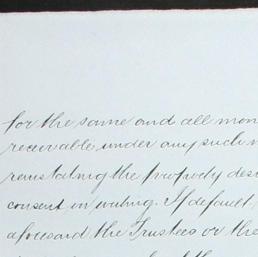 for the same and all mon
receivable under any such
reinstating the property des
consent in writing. If default
aforesaid the Trustees or the